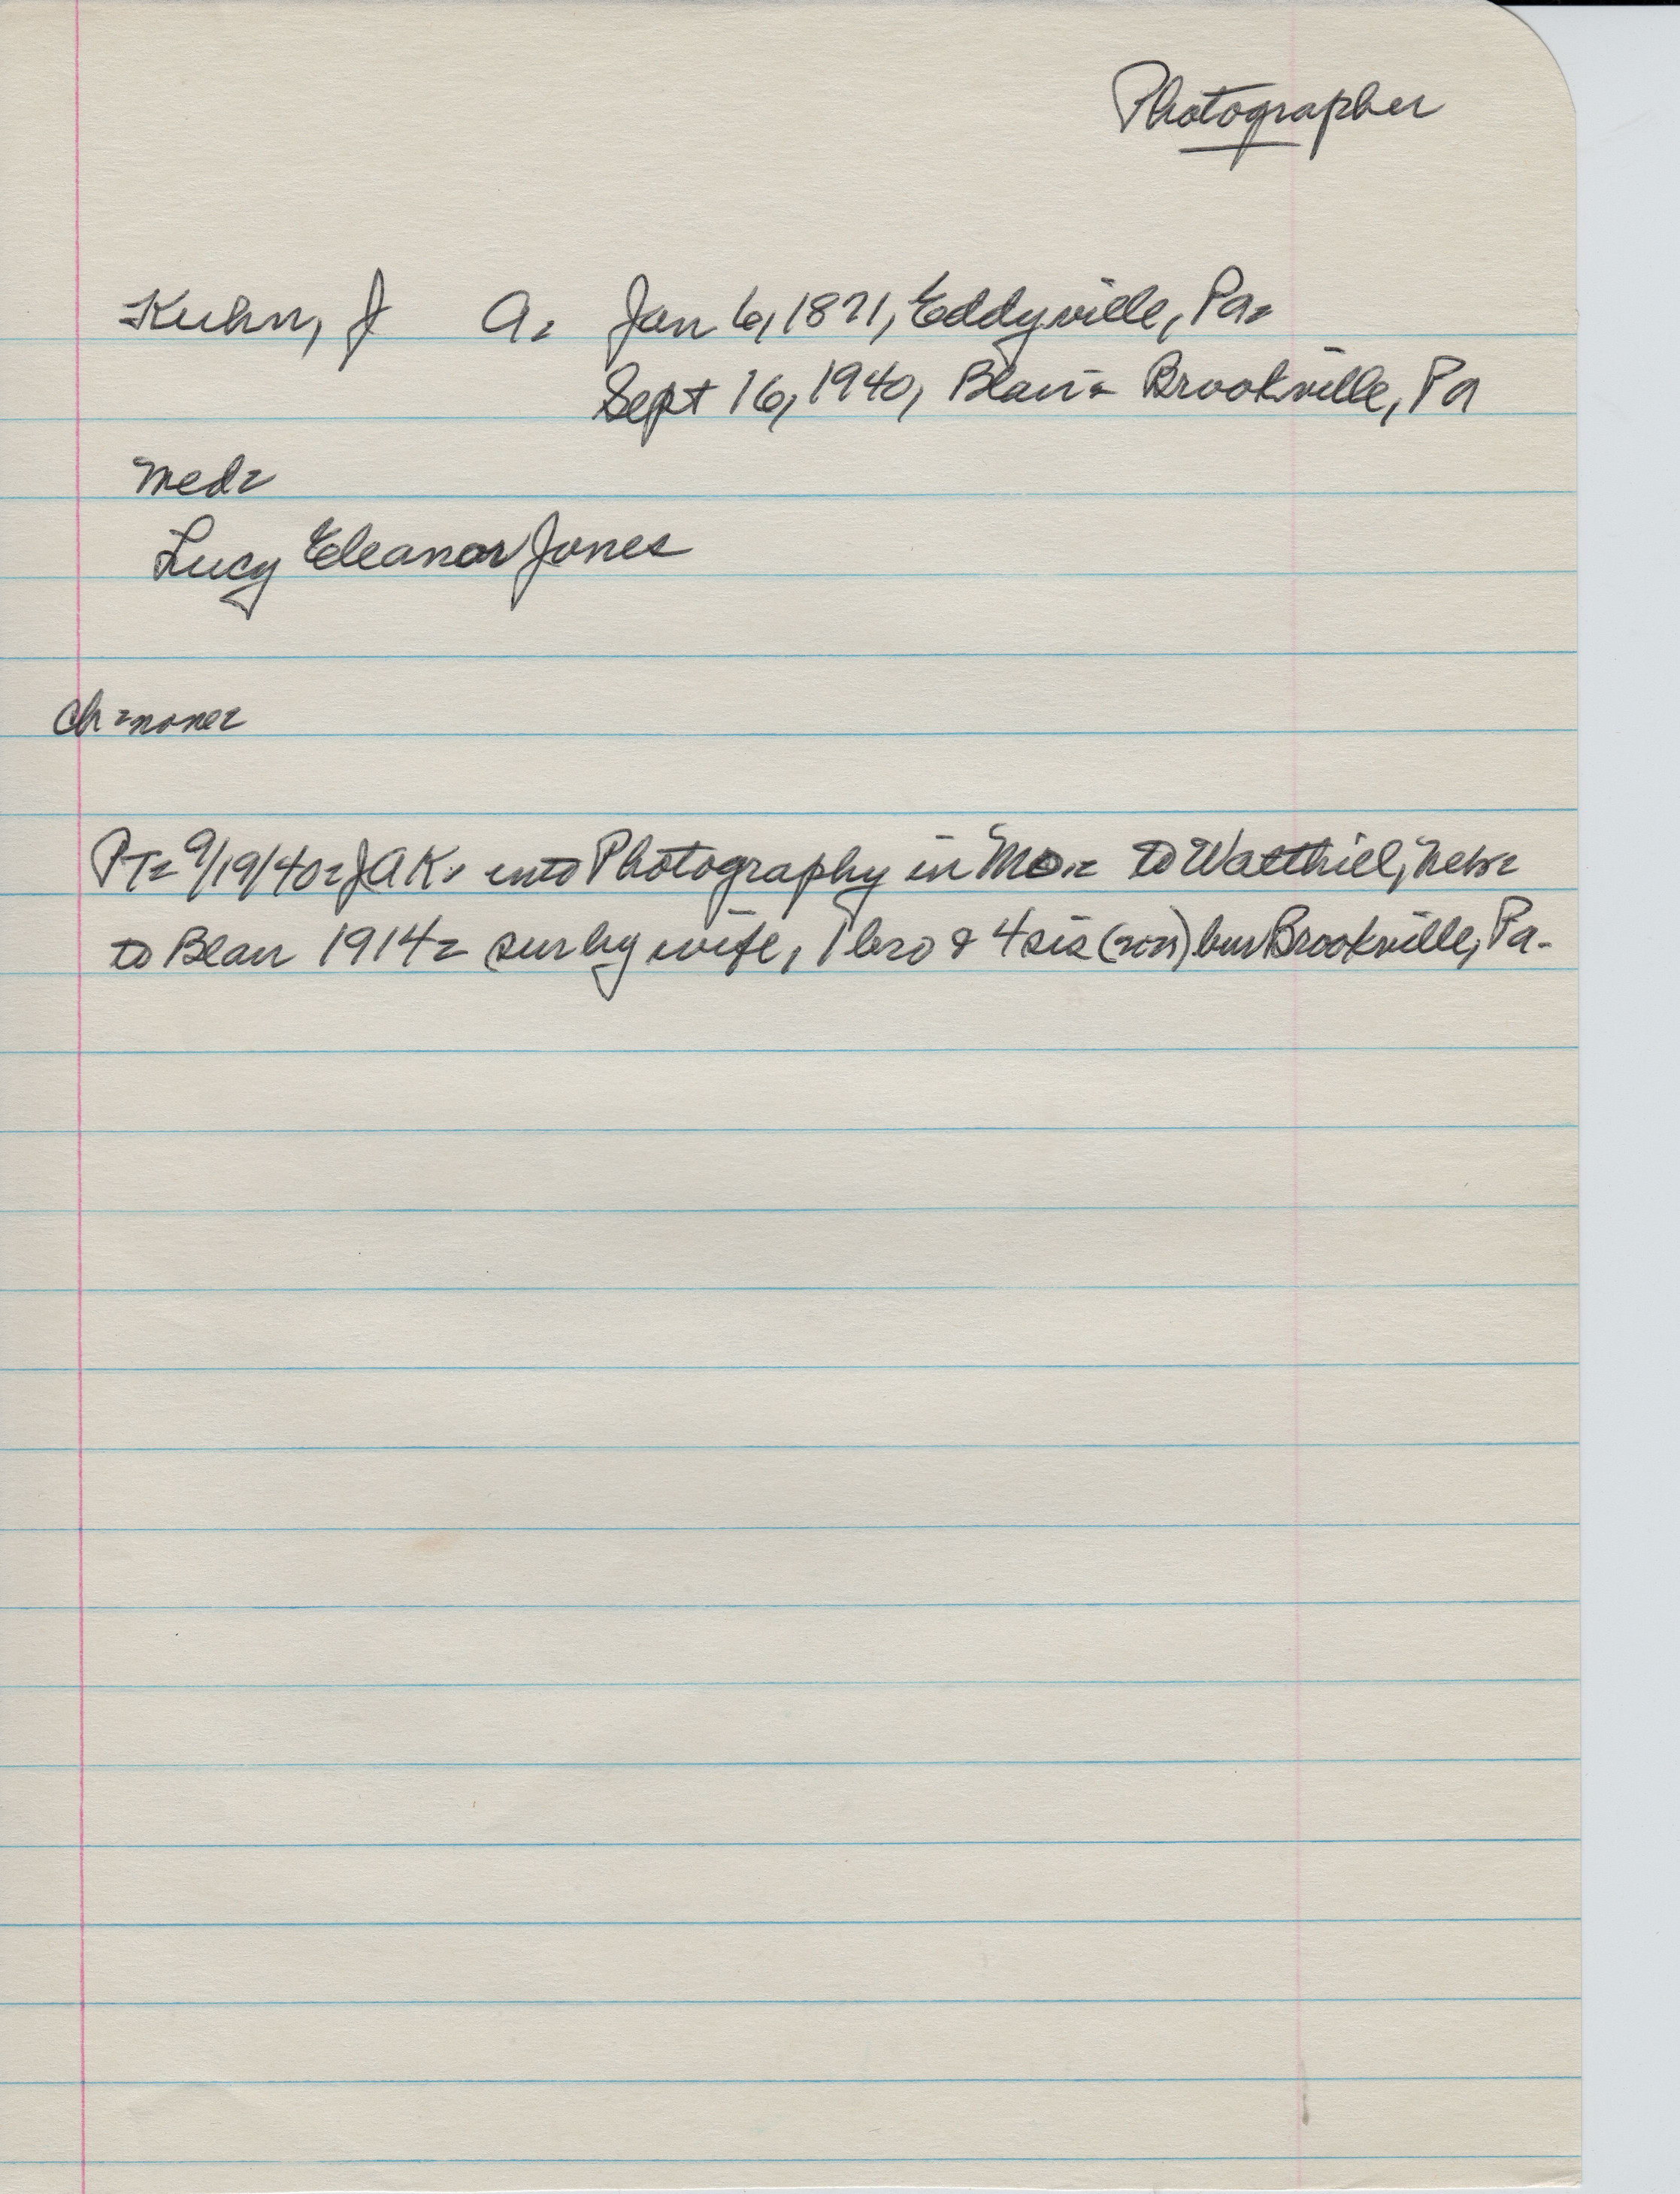 Photographer
Kuhn, J A. Jan 6, 1871, Eddyville, Pa-
Sept 16, 1940, Blair- Brookville, Pa
Med-
Lucy Eleanor Jones
Ch-none-
PT- 9/19/40-JAK- into Photography in Mo.- to Walthill, Neb-
to Blair 1914- sur by wife, 1 bro & 4 sis bur Brookville, Pa-